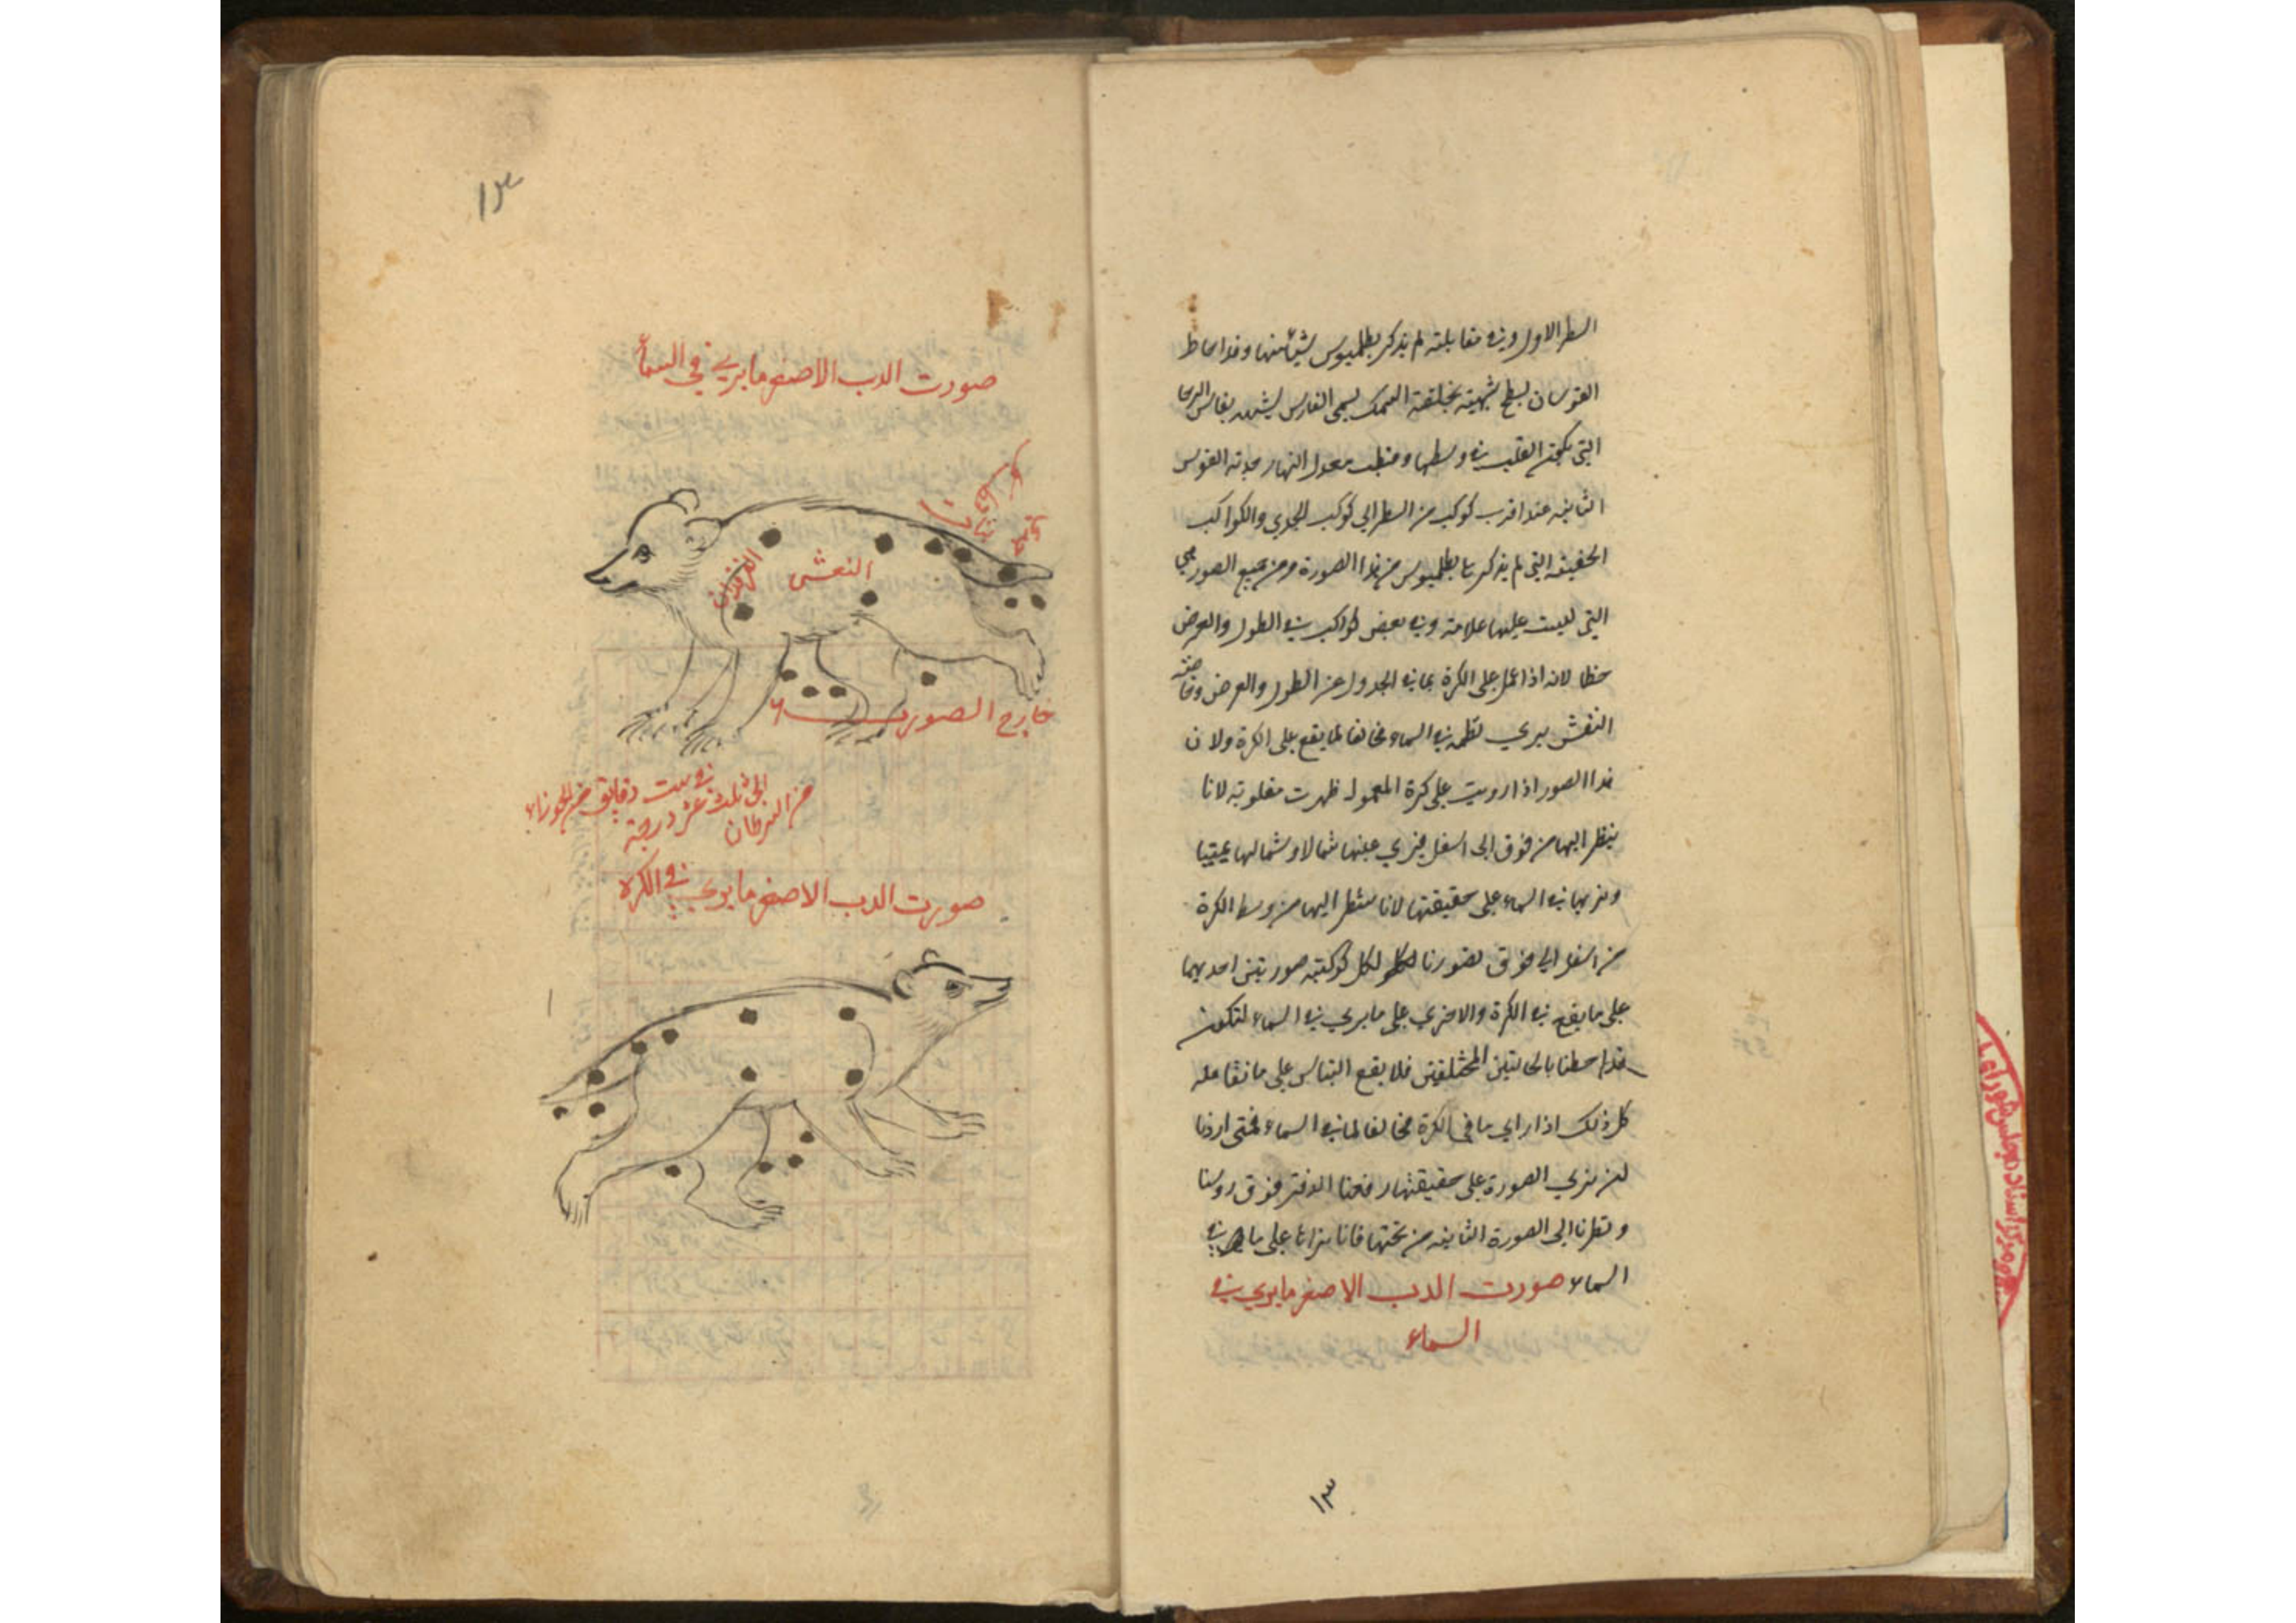 السطر الاول وفي مقابلته لم يذكر بطلميوس شيئا منها وقد احاط
القوسان بسطح شبيهة بخلقة السمك يسمى الفاس يشبه بفاس الرحا
التي يكون القطب في وسطها وقطب معدل النهار حدبة القوس
الثانيه عند اقرب كوكب من السطر الى كوكب الجدي والكواكب
الخفيفه التي لم يذكرها بطلميوس من هذا الصورة ومن جميع الصور هي
التي ليست عليها علامة وفي بعض كواكب في الطول والعرض
خطا لانه اذا عمل على الكرة بما في الجدول من الطول والعرض وخاصة
النعش يري نظمه في السماء مخالفا لما يقع على الكرة ولان
هذا الصور اذا رويت على كرة المعمول ظهرت مقلوبة لانا
ننظر اليها من فوق الى اسفل فنري يمينها شمالا وشمالها يمينا
ونريها في السماء على حقيقتها لانا ننظر اليها من وسط الكرة
من اسفل الى فوق تصورنا لكل كوكبة صورتين احديهما
على ما يقع في الكرة والاخري على ما يري في السماء لتكون
قد احطنا بالحالتين المختلفتين فلا يقع التباس على ما نقا مله
كل ذلك اذا راي ما في الكرة مخالفا لما في السماء فمتى اردنا
لن نري الصورة على حقيقتها رفعنا الدفتر فوق روسنا
ونظرنا الى الصورة الثانيه من تحتها فانا نراها على ما هي في
السماء صورت الدب الاصغر ما يري في
السماء
١٣
١٣
صورت الدب الاصغر ما يري في السماء
النعش
الفرقدان
خارج الصورت
في ست دقايق من الجوزاء
الى ثلث عشر درجة
من السرطان
صورت الدب الاصغر ما يري في الكرة